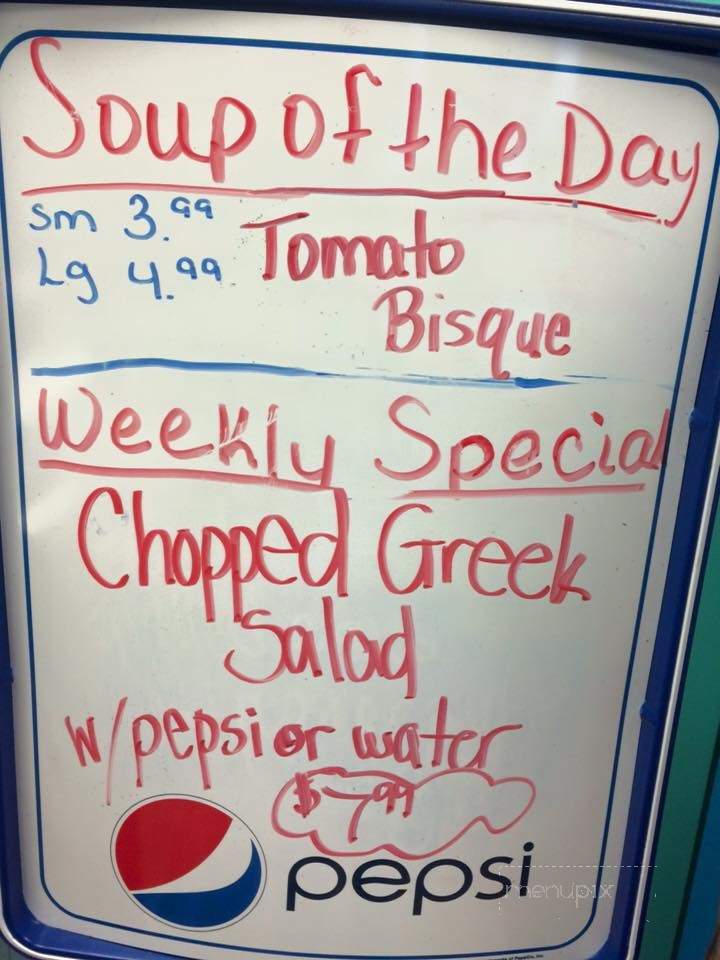 Soup of the Day
Sm 3.99
Lg 4.99
Tomato
Bisque
Weekly Special
Chopped Greek
Salad
w/pepsi or water
$7.99
pepsi
menupix